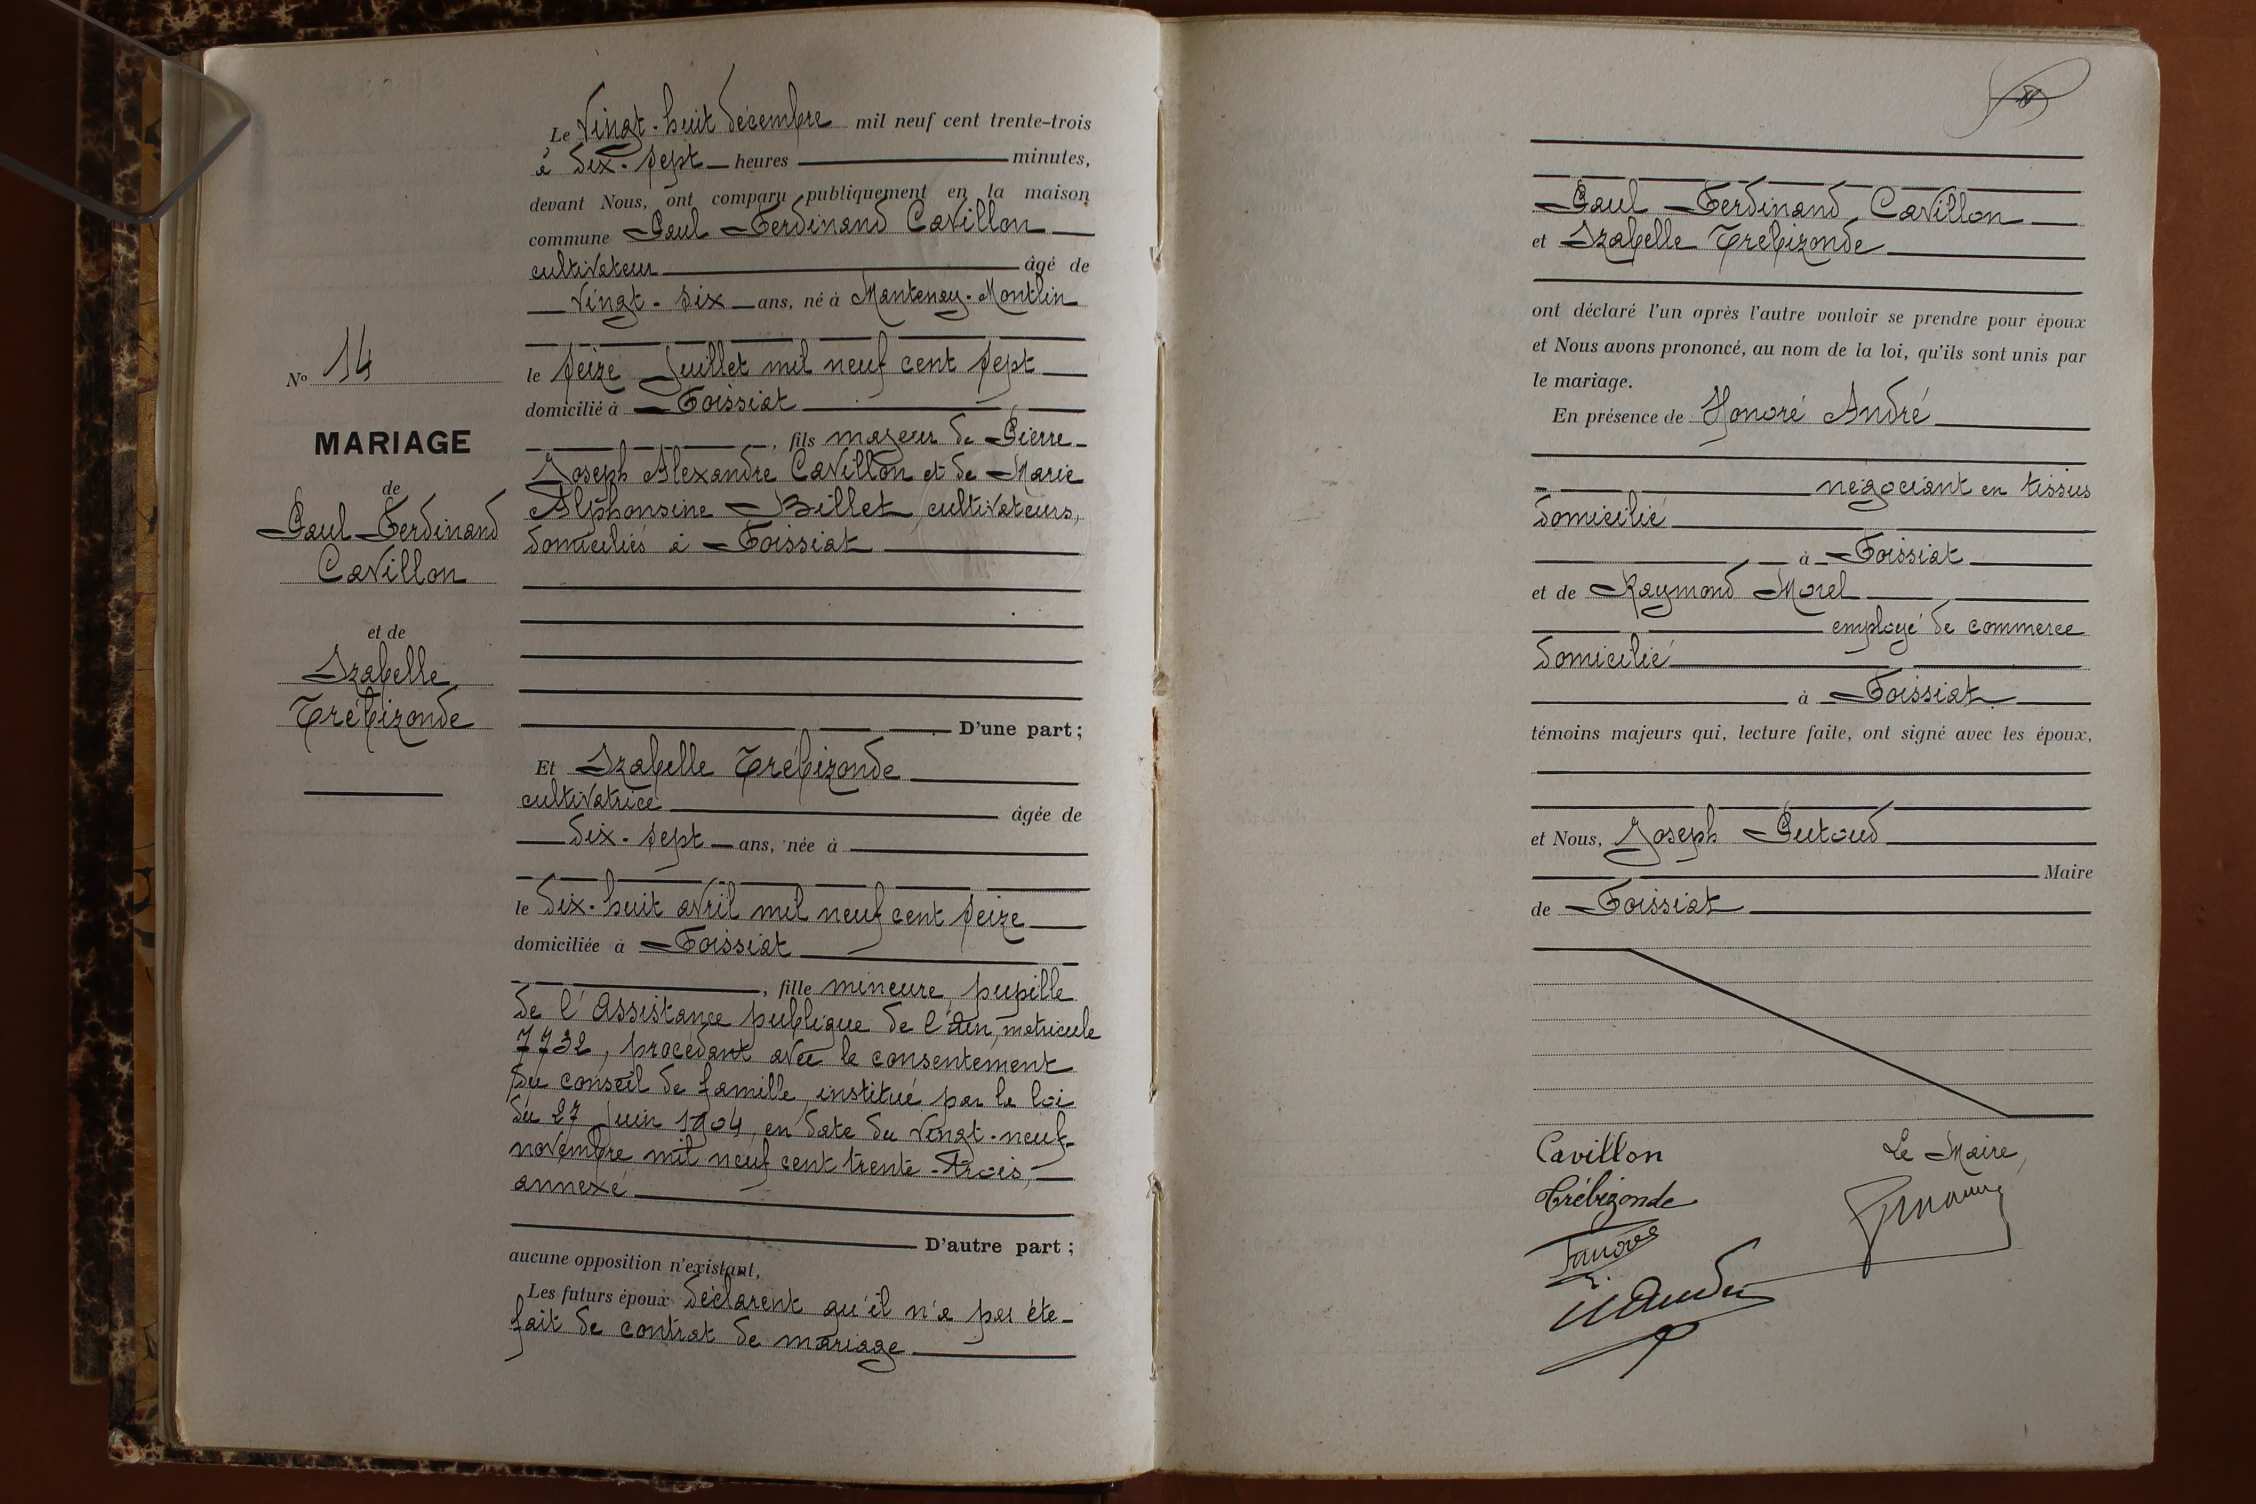 Le Vingt-huit décembre mil neuf cent trente-trois
à dix-sept heures minutes,
devant Nous, ont comparu publiquement en la maison
commune Paul Ferdinand Cavillon
cultivateur âgé de
vingt-six ans, né à Mantenay-Montlin
le seize juillet mil neuf cent sept
domicilié à Foissiat
, fils majeur de Pierre
Joseph Alexandre Cavillon et de Marie
Alphonsine Billet, cultivateurs,
domiciliés à Foissiat
D'une part ;
Et Izabelle Trébizonde
cultivatrice âgée de
dix-sept ans, née à
le dix-huit avril mil neuf cent seize
domiciliée à Foissiat
, fille mineure, pupille
de l'Assistance publique de l'Ain, matricule
7732, procédant avec le consentement
du conseil de famille institué par la loi
du 27 juin 1904, en date du vingt-neuf
novembre mil neuf cent trente-trois,
annexé
D'autre part ;
aucune opposition n'existant,
Les futurs époux déclarent qu'il n'a pas été
fait de contrat de mariage
No 14
MARIAGE
de
Paul Ferdinand
Cavillon
et de
Izabelle
Trébizonde
Paul Ferdinand Cavillon
et Izabelle Trébizonde
ont déclaré l'un après l'autre vouloir se prendre pour époux
et Nous avons prononcé, au nom de la loi, qu'ils sont unis par
le mariage.
En présence de Honoré André
négociant en tissus
domicilié
à Foissiat
et de Raymond Morel
employé de commerce
domicilié
à Foissiat
témoins majeurs qui, lecture faite, ont signé avec les époux,
et Nous, Joseph Putoud
Maire
de Foissiat
Cavillon
Le Maire,
Trébizonde